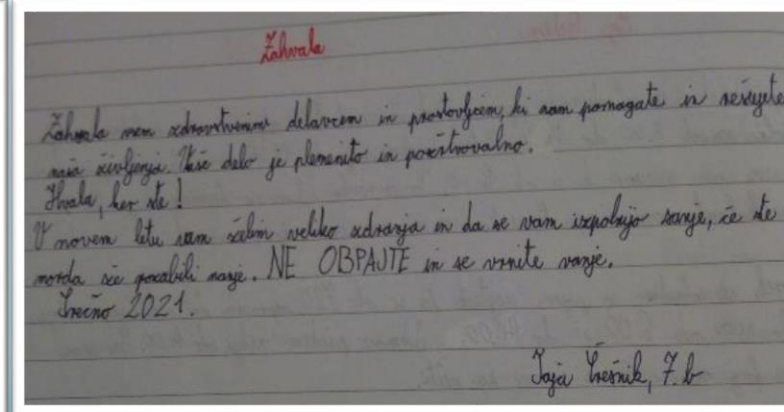 Zahvala
Zahvala vsem zdravstvenim delavcem in prostovoljcem, ki nam pomagate in rešujete
naša življenja. Vaše delo je plemenito in požrtvovalno.
Hvala, ker ste!
V novem letu vam želim veliko zdravja in da se vam izpolnijo sanje, če ste
morda že pozabili nanje. NE OBPAJTE in se vrnite vanje.
Srečno 2021.
Taja Črešnik, 7. b